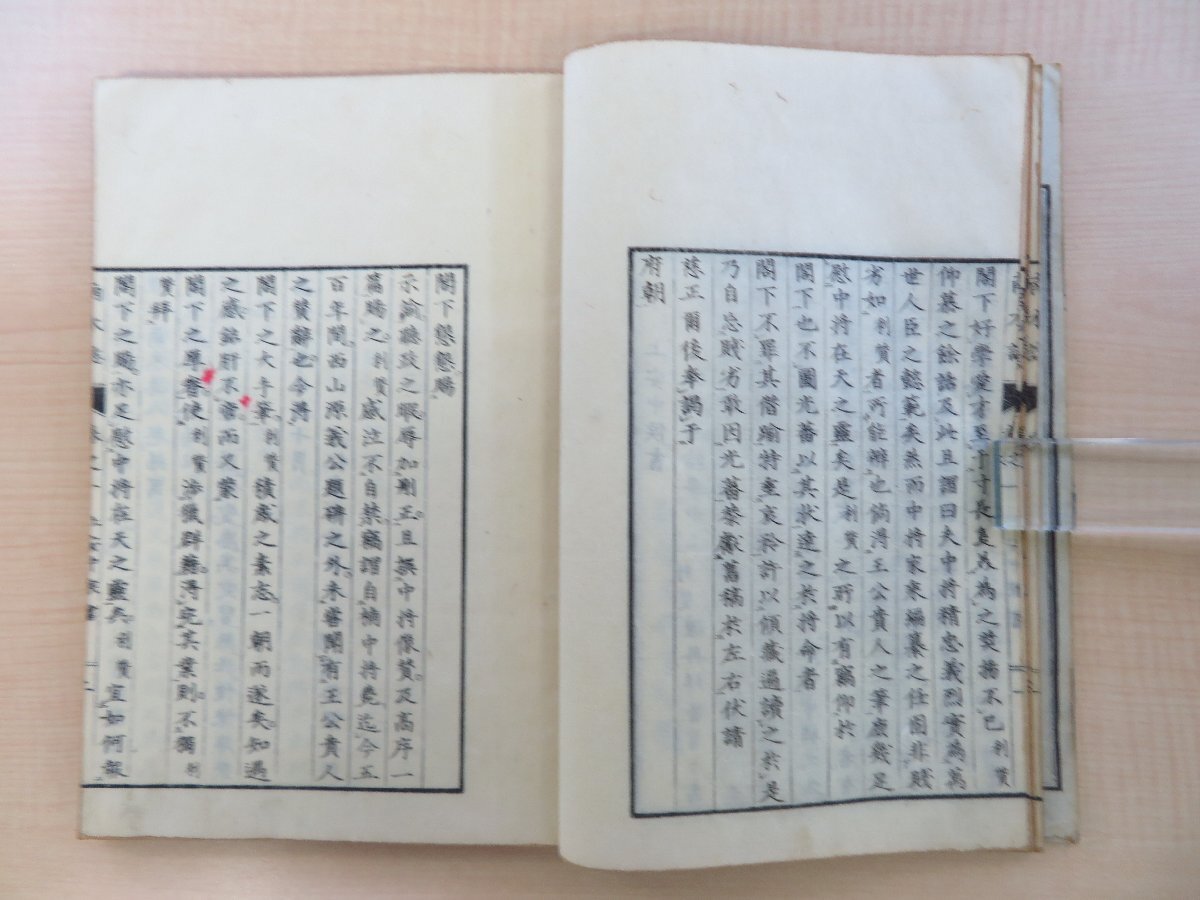 閣下好學愛才至
為之獎揚不已 利貫
仰慕之餘語及此且謂曰夫中將精忠義烈實為萬
世人臣之懿範矣然而中將家乘編纂之任固非賤
劣如 利貫者所能辨也倘得王公貴人之筆庶幾足
慰中將在天之靈矣是 利貫之所以有竊仰於
閣下也不圖光蕃以其狀達之於將命者
閣下不罪其僭踰特垂哀矜許以傾藏過讀之於是
乃自忘賤劣敢因光蕃榮獻舊稿於左右伏請
慈正爾後奉謁于
府朝
閣下懇懇賜
示諭聽政之暇辱加刪正且撰中將像贊及高序一
篇賜之 利貫感泣不自禁竊謂自楠中將薨迄今五
百年間西山源義公題碑之外未嘗聞有王公貴人
之贊辭也今得
閣下之大手筆 利貫積歲之素志一朝而遂矣知遇
之感銘肝不啻而又蒙
閣下之尊眷使 利貫涉獵群籍得完其業則不獨 利
貫拜
閣下之賜亦足慰中將在天之靈矣 利貫宜如何報